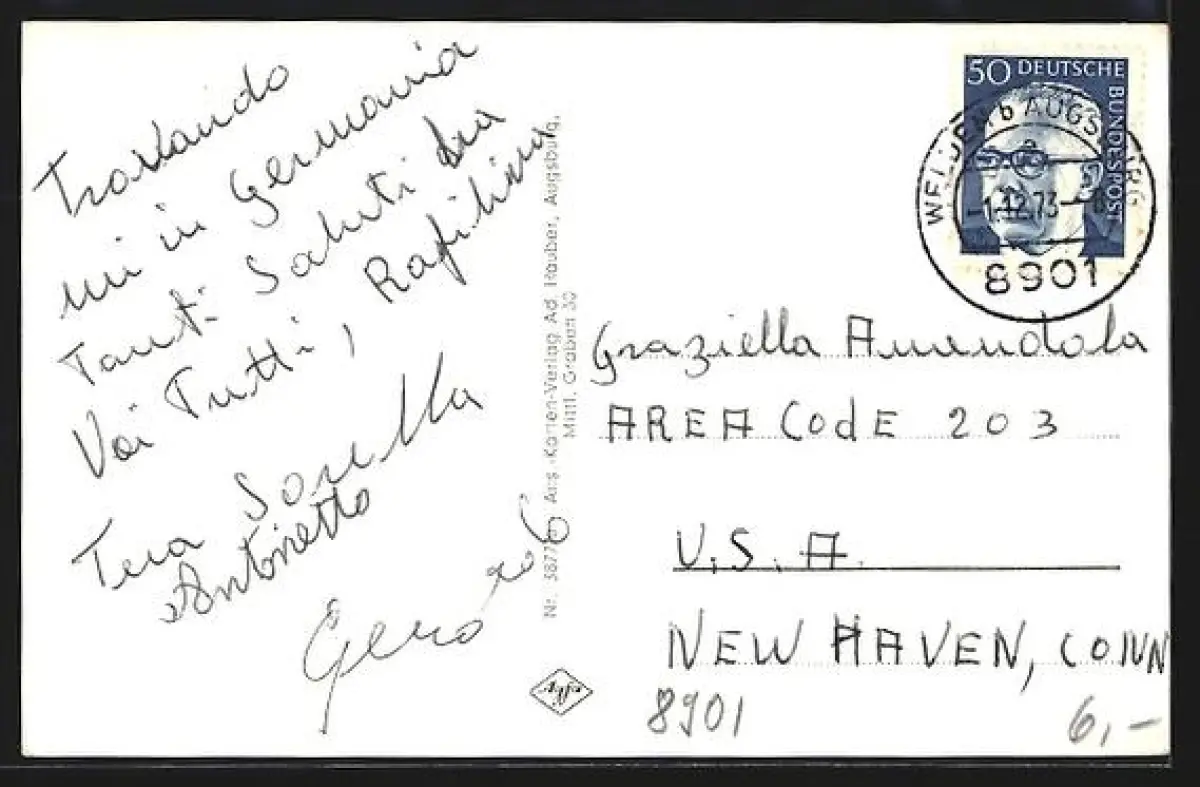 Trovando
mi in Germania
Tanti Saluti da
Voi Tutti, Rafilina
Tua Sorella
Antonietta
Nr. 3877 Aus-Karten-Verlag Ad. Rauber, Augsburg,
Mittl. Graben 30
50 DEUTSCHE
BUNDESPOST
WELDEN b AUGSBURG
-1.12.73-
8901
Graziella Amendola
AREA CODE 203
U.S.A.
NEW HAVEN, CONN
8901
6,-